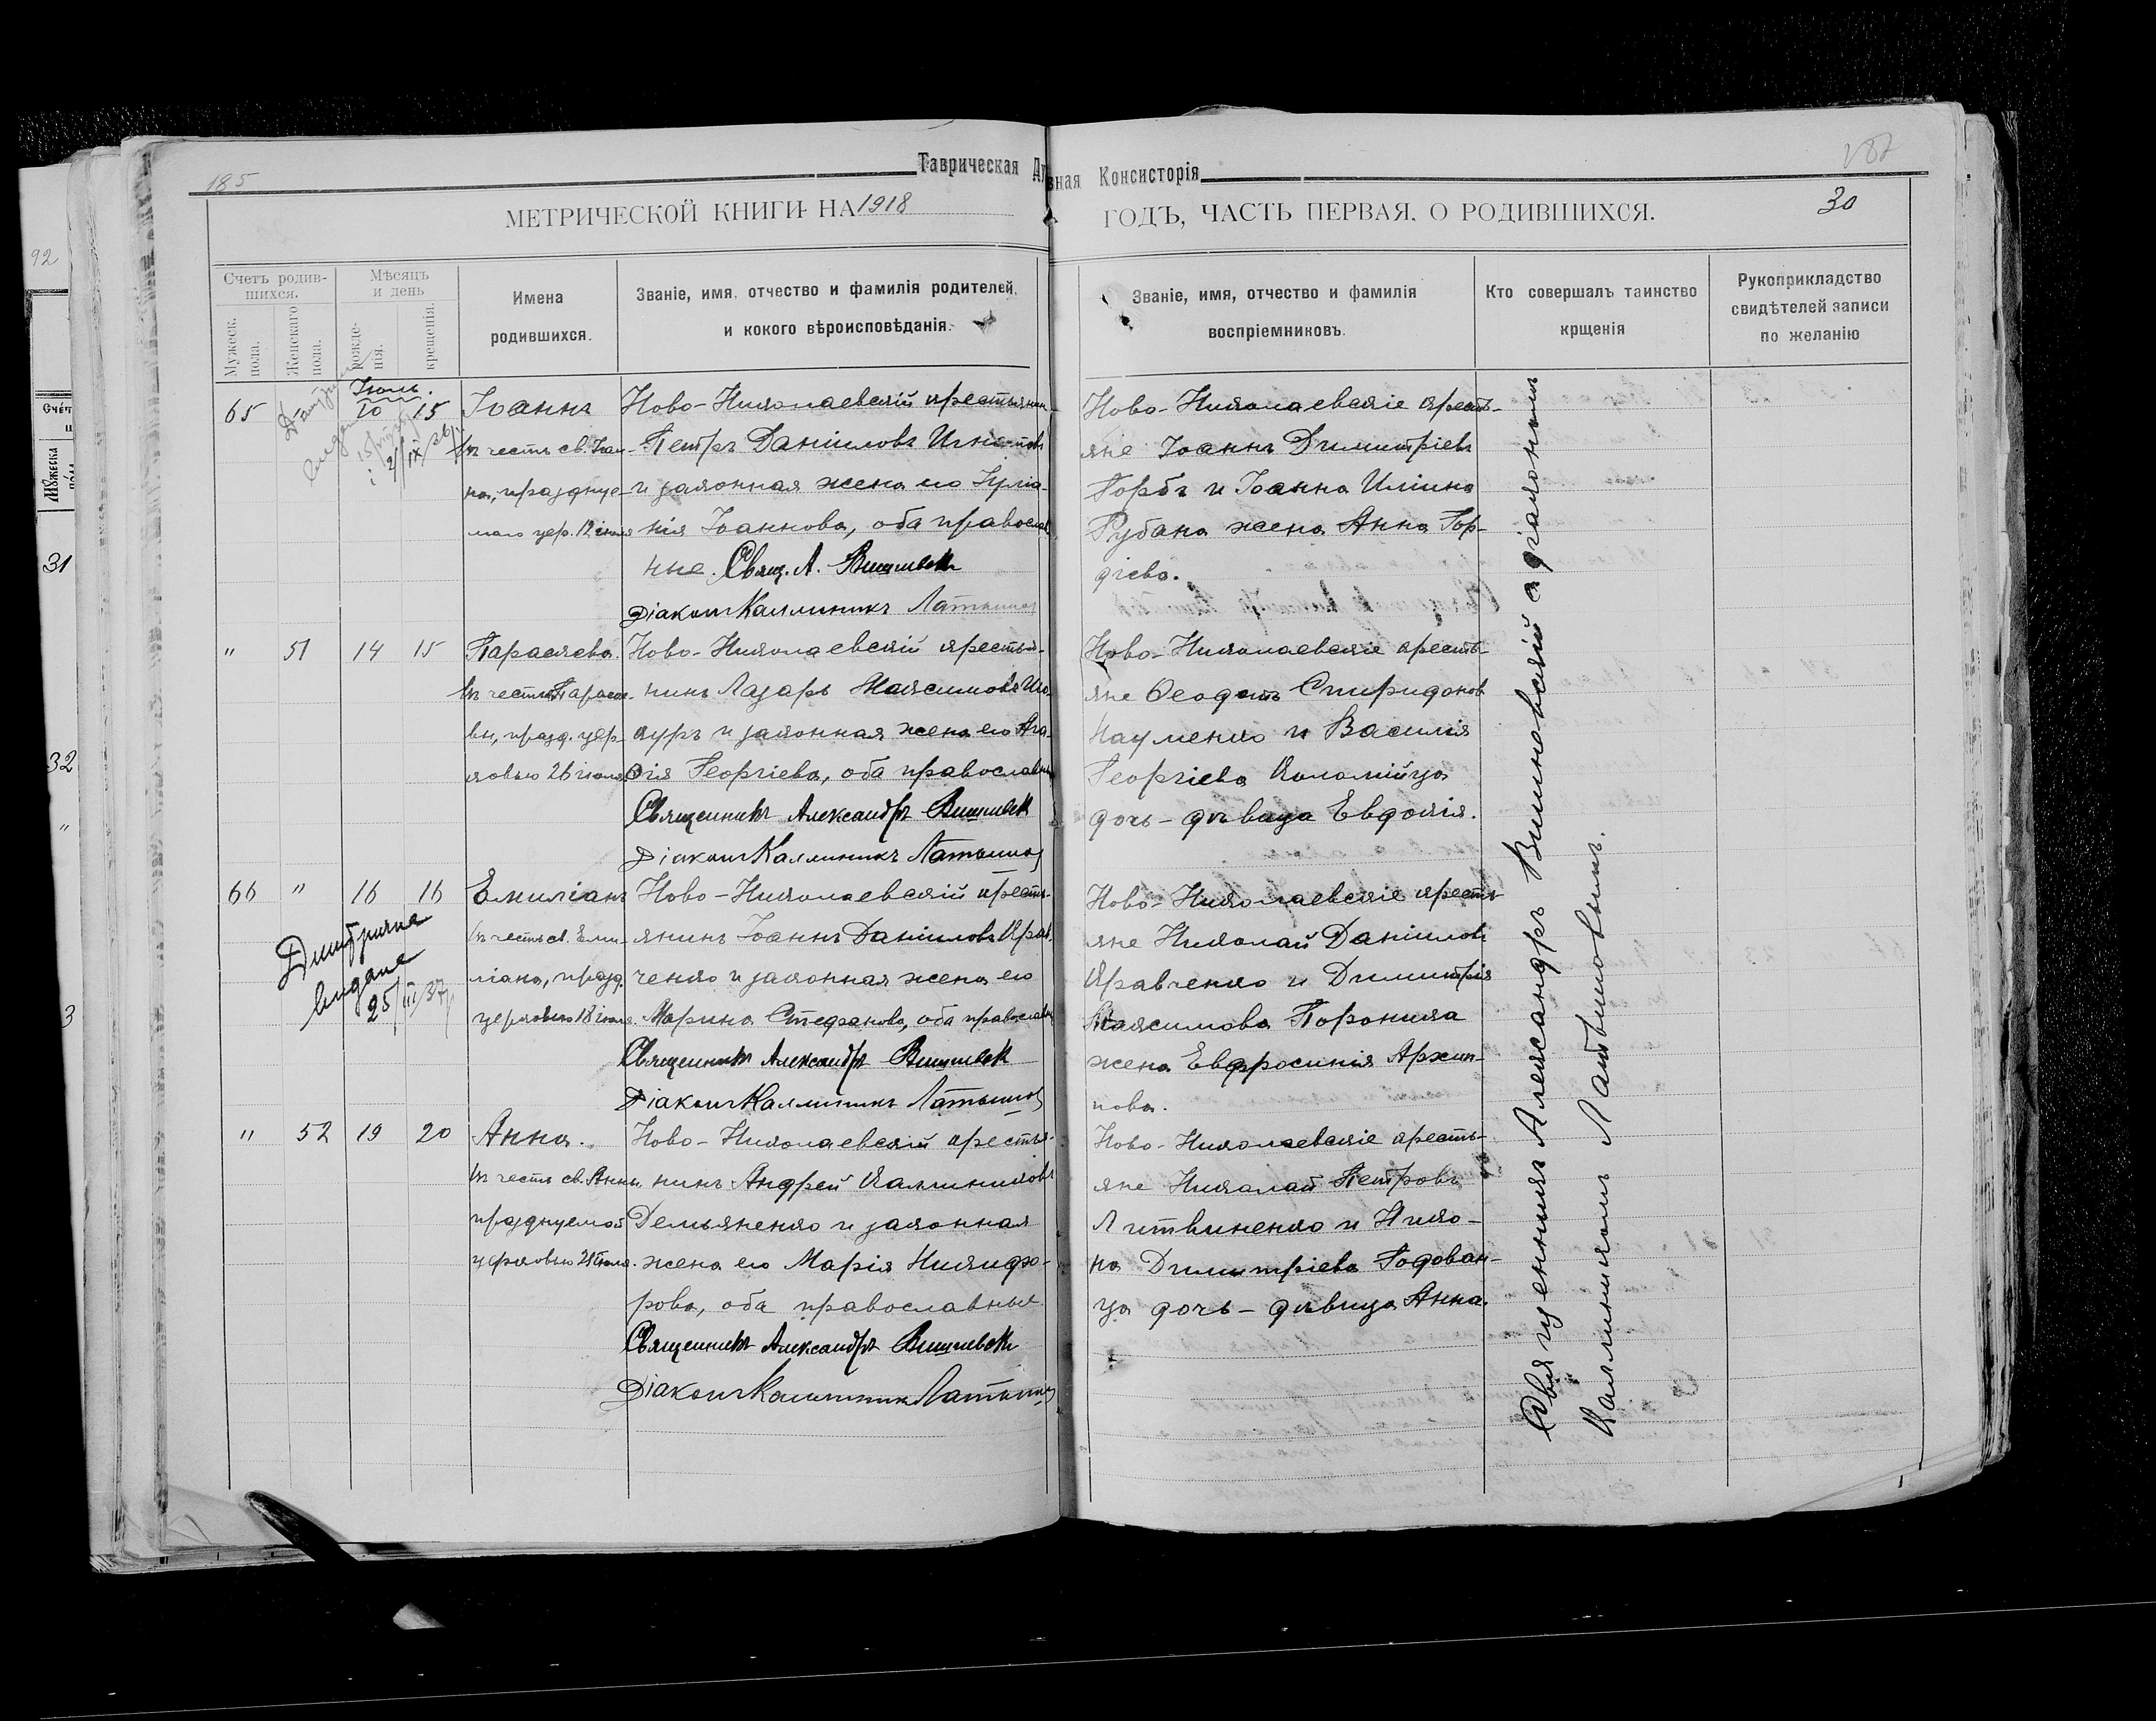 Таврическая
Консисторія
185
МЕТРИЧЕСКОЙ КНИГИ НА 1918
ГОДЪ, ЧАСТЬ ПЕРВАЯ, О РОДИВШИХСЯ.
30
92
Счетъ родив-
шихся.
Мужеск.
пола.
Женскаго
пола.
Мѣсяцъ
и день
рожде-
нія.
крещенія.
Имена
родившихся.
Званіе, имя, отчество и фамилія родителей,
и кокого вѣроисповѣданія.
Званіе, имя, отчество и фамилія
воспріемниковъ.
Кто совершалъ таинство
крщенія
Рукоприкладство
свидѣтелей записи
по желанію
31
32
3
Іюль.
65
10 15
Іоаннъ
въ честь св. Іоан-
на, празднуе-
маго цер. 12 іюля
Ново-Николаевскій крестьянин
Петръ Даніиловъ
и законная жена его Іуліа-
нія Іоаннова, оба православ
ные. Свящ. А.
Діаконъ Каллиникъ Латышов
Ново-Николаевскіе кресть-
яне Іоаннъ Димитріевъ
Горбъ и Іоанна Иліина
Рубана жена Анна Гор-
діева.
" 51 14 15
Параскева.
въ честь Параске-
вы, празд. цер-
ковью 26 іюля
Ново-Николаевскій крестья-
нинъ Лазарь Максимовъ
и законная жена его Ага-
ѳія Георгіева, оба православны
Священникъ Александръ
Діаконъ Каллиникъ Латышов
Ново-Николаевскіе кресть-
яне Ѳеодотъ Спиридонов
Науменко и Василія
Георгіева Коломійца
дочь-дѣвица Евдокія.
66 " 16 16
Дмитрияне
видане
25/III 37
Емиліанъ
въ честь св. Еми-
ліана, празд.
церковью 18 іюля.
Ново-Николаевскій кресть-
янинъ Іоаннъ Даніиловъ Крав
ченко и законная жена его
Марина Стефанова, оба православн
Священникъ Александръ
Діаконъ Каллиникъ Латышов
Ново-Николаевскіе кресть-
яне Николай Даніилов
Кравченко и Димитрія
Максимова
жена Евфросинія Архип-
пова.
" 52 19 20
Анна.
въ честь св. Анны
празднуемой
церковью 25 іюля.
Ново-Николаевскій крестья-
нинъ Андрей Каллиниковъ
Демьяненко и законная
жена его Марія Никифо-
рова, оба православные
Священникъ Александръ
Діаконъ Каллиникъ Латышов
Ново-Николаевскіе кресть-
яне Николай Петровъ
Литвиненко и Нико-
на Димитріева Годован-
ца дочь-дѣвица Анна.
Священникъ Александръ Вишневскій съ діакономъ
Каллиникомъ Латышовымъ.